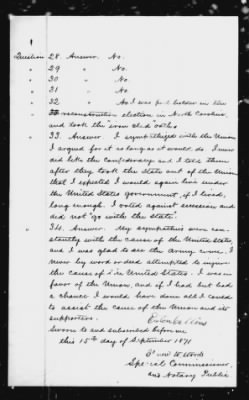 Question 28. Answer. No.
" 29 " No.
" 30 " No.
" 31 " No.
" 32 " As I was poll holder in the
reconstruction election in North Carolina,
and took the "iron clad" oaths
" 33. Answer. I sympathized with the Union
I argued for it as long as it would do. I never
did like the Confederacy and I told them
after they took the State out of the Union
that I expected I would again live under
the United States government, if I lived
long enough. I voted against secession and
did not "go with the State".
" 34. Answer. My sympathies were con-
stantly with the cause of the United States
and I was glad to see the army come. I
never by word or deed attempted to injure
the cause of the United States. I was in
favor of the Union, and if I had but had
a chance I would have done all I could
to assist the cause of the Union and its
supporters.
Sworn to and subscribed before me
this 15th day of September 1871
Special Commissioner
and Notary Public